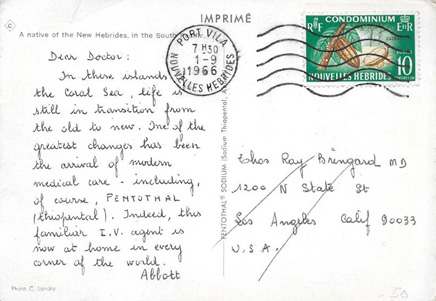 IMPRIMÉ
A native of the New Hebrides, in the South
Dear Doctor:
In these islands
the Coral Sea, life is
still in transition from
the old to new. One of the
greatest changes has been
the arrival of modern
medical care - including,
of course, PENTOTHAL
(thiopental). Indeed, this
familiar I.V. agent is
now at home in every
corner of the world.
Abbott
Photo C. Landry
PENTOTHAL® SODIUM (Sodium Thiopental,
PORT-VILA
7 H 30
1-9
1966
NOUVELLES HEBRIDES
RF CONDOMINIUM EIIR
NOUVELLES HÉBRIDES
10
Thos Ray Bringard MD
1200 N State St
Los Angeles Calif 90033
U.S.A.
50